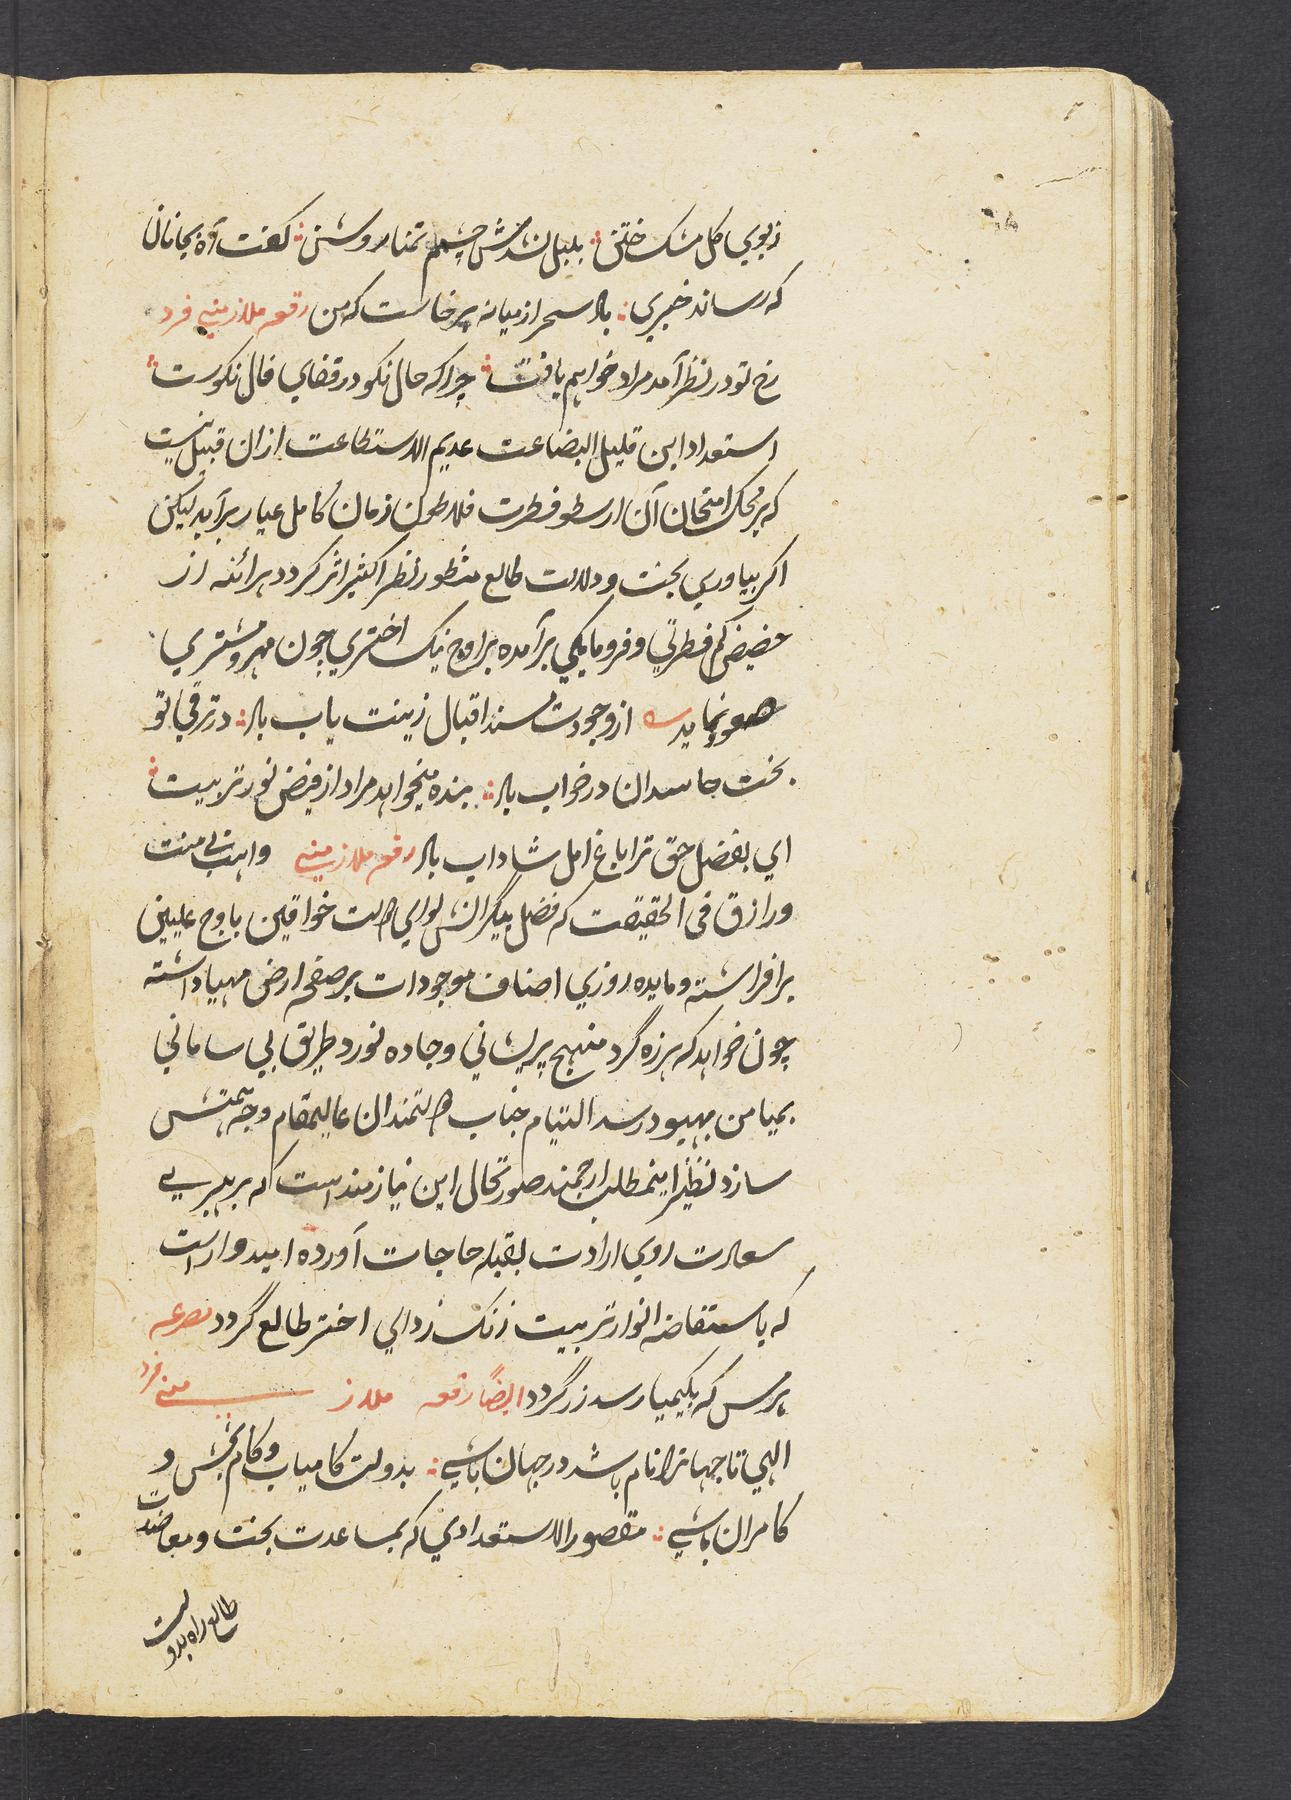 ز بوی گل مشک ختن ؛ بلبل شدمش چشم تمنا روشن ؛ گفت آه بجانان
که رساند خبری ؛ باد سحر از میانه برخاست که من رقعه ملازمتی فرد
رخ تو در نظر آمد مراد خواهم یافت ؛ چرا که حال نکو در قفای فال نکوست ؛
استعداد این قلیل البضاعت عدیم الاستطاعت ازان قبیل نیست
که بر محک امتحان آن ارسطو فطرت فلاطون زمان کامل عیار برآید لیکن
اکر بیاوری بخت و دلالت طالع منظور نظر اکثیر اثر کردد هرائنه از
حضیض کم فطرتی و فرومایگی برآمده بر اوج نیک اختری چون مهر و مشتری
صعود نماید ؎ از وجودت مسند اقبال زینت یاب باد ؛ در ترقی تو
بخت حاسدان در خواب باد ؛ بنده میخواهد مراد از فیض نور تربیت ؛
ای بفضل حق ترا باغ امل شاداب باد رقعه ملازمتی واهب بی منت
و رازق فی الحقیقت که فضل بیگرانش لوای دولت خواقین باوج علیین
برافراشته و مایده روزی اصناف موجودات بر صفحه ارض مهیا داشته
چون خواهد که هرزه گرد منهج پریشانی و جاده نورد طریق بی سامانی
بمیامن بهبود رسد التیام جناب دولتمندان عالیمقام وجه همتش
سازد نظیر اینمطلب ارجمند صورتحال این نیازمند است که برهبریی
سعادت روی ارادت بقبله حاجات آورده امیدوار است
که باستفاضه انوار تربیت زنک زدای اختر طالع گردد مصرعه
هر مس که بکیمیا رسد زر گردد ایضاً رقعه ملازمتی فرد
الهی تا جهانرا نام باشد در جهان باشی ؛ بدولت کامیاب و کام بخش و
کامران باشی ؛ مقصور الاستعدادی که بمساعدت بخت و معاضدت
طالع راه بدولت